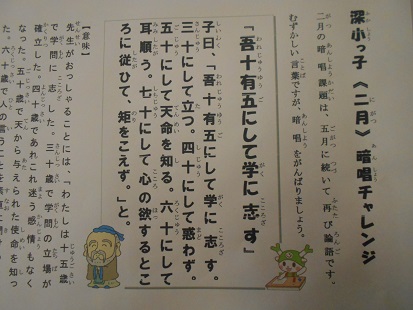 深小っ子《二月》暗唱チャレンジ
二月の暗唱課題は、五月に続いて再び論語です。
むずかしい言葉ですが、暗唱をがんばりましょう。
「吾十有五にして学に志す」
子曰、「吾十有五にして学に志す。
三十にして立つ。四十にして惑わず。
五十にして天命を知る。六十にして
耳順う。七十にして心の欲するとこ
ろに従ひて、矩をこえず。」と。
【意味】
先生がおっしゃることには、「わたしは十五歳
で学問に志した。三十歳で学問の立場が
確立した。四十歳であれこれ迷う感情もなく
なった。五十歳で天から与えられた使命を知っ
た。六十歳で人の言うことを